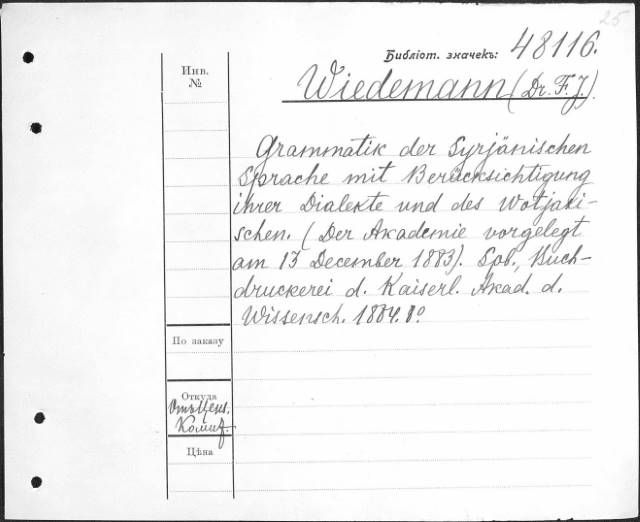 25
Библіот. значекъ: 48116.
Инв. №
Wiedemann (Dr. F. J.).
Grammatik der Syrjänischen
Sprache mit Berücksichtigung
ihrer Dialekte und des Wotjaki-
schen. (Der Akademie vorgelegt
am 13 December 1883). Spb., Buch-
druckerei d. Kaiserl. Akad. d.
Wissensch. 1884. 8°
По заказу
Откуда
Отъ Ценз.
Комит.
Цѣна